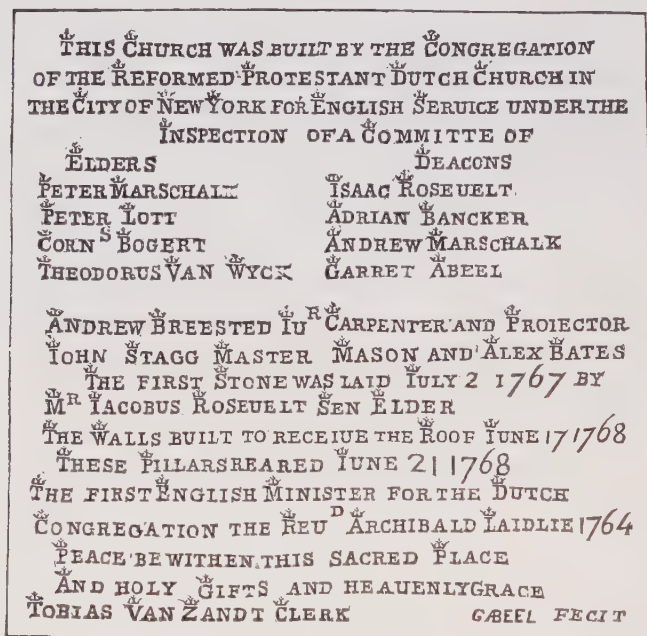 THIS CHURCH WAS BUILT BY THE CONGREGATION
OF THE REFORMED PROTESTANT DUTCH CHURCH IN
THE CITY OF NEW YORK FOR ENGLISH SERUICE UNDER THE
INSPECTION OF A COMMITTE OF
ELDERS DEACONS
PETER MARSCHALK ISAAC ROSEUELT
PETER LOTT ADRIAN BANCKER
CORNS BOGERT ANDREW MARSCHALK
THEODORUS VAN WYCK GARRET ABEEL
ANDREW BREESTED IUR CARPENTER AND PROIECTOR
IOHN STAGG MASTER MASON AND ALEX BATES
THE FIRST STONE WAS LAID IULY 2 1767 BY
MR IACOBUS ROSEUELT SEN ELDER
THE WALLS BUILT TO RECEIUE THE ROOF IUNE 17 1768
THESE PILLARS REARED IUNE 21 1768
THE FIRST ENGLISH MINISTER FOR THE DUTCH
CONGREGATION THE REUD ARCHIBALD LAIDLIE 1764
PEACE BE WITHEN THIS SACRED PLACE
AND HOLY GIFTS AND HEAUENLY GRACE
TOBIAS VAN ZANDT CLERK GABEEL FECIT